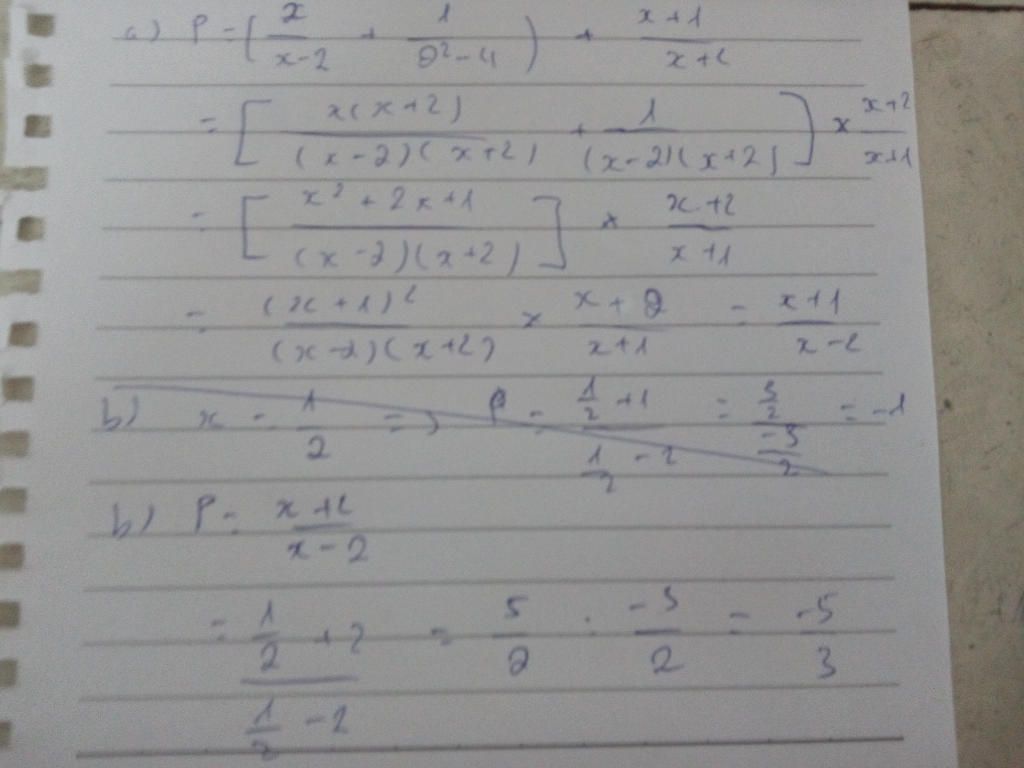 a) P = ( x/(x-2) + 1/(2²-4) ) + (x+1)/(x+2)
= [ x(x+2)/((x-2)(x+2)) + 1/((x-2)(x+2)) ] × (x+2)/(x+1)
= [ (x²+2x+1)/((x-2)(x+2)) ] × (x+2)/(x+1)
= (x+1)²/((x-2)(x+2)) × (x+2)/(x+1) = (x+1)/(x-2)
b) x = 1/2 => P = (1/2+1)/(1/2-2) = (3/2)/(-3/2) = -1
b) P = (x+2)/(x-2)
= (1/2+2)/(1/2-2) = 5/2 : -3/2 = -5/3